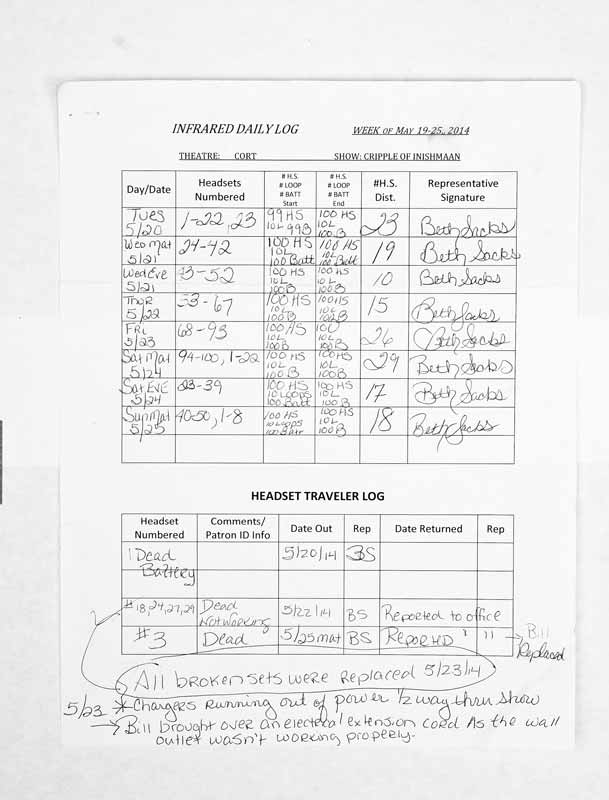 INFRARED DAILY LOG WEEK OF MAY 19-25, 2014
THEATRE: CORT SHOW: CRIPPLE OF INISHMAAN
Day/Date Headsets Numbered # H.S. # LOOP # BATT Start # H.S. # LOOP # BATT End #H.S. Dist. Representative Signature
Tues 5/20 1-22, 23 99 HS 10L 99B 100 HS 10L 100B 23 Beth Sacks
Wed Mat 5/21 24-42 100 HS 10L 100 Batt 100 HS 10L 100 Batt 19 Beth Sacks
Wed Eve 5/21 43-52 100 HS 10L 100B 100 HS 10L 100B 10 Beth Sacks
Thur 5/22 53-67 100 HS 10L 100B 100 HS 10L 100B 15 Beth Sacks
FRI 5/23 68-93 100 HS 10L 100B 100 10L 100B 26 Beth Sacks
Sat Mat 5/24 94-100, 1-22 100 HS 10L 100B 100 HS 10L 100B 29 Beth Sacks
Sat EVE 5/24 23-39 100 HS 10 LOOPS 100 Batt 100 HS 10L 100B 17 Beth Sacks
Sun Mat 5/25 40-50, 1-8 100 HS 10 LOOPS 100 Batt 100 HS 10L 100B 18 Beth Sacks
HEADSET TRAVELER LOG
Headset Numbered Comments/ Patron ID Info Date Out Rep Date Returned Rep
1 Dead 5/20/14 BS
Battery
#18,24,27,29 Dead Not working 5/22/14 BS Reported to office
#3 Dead 5/25 mat BS REPORTED " " → Bill Replaced
All broken sets were Replaced 5/23/14
5/23 * Chargers Running out of power 1/2 way thru show
→ Bill brought over an electrical extension cord As the wall
outlet wasn't working properly.